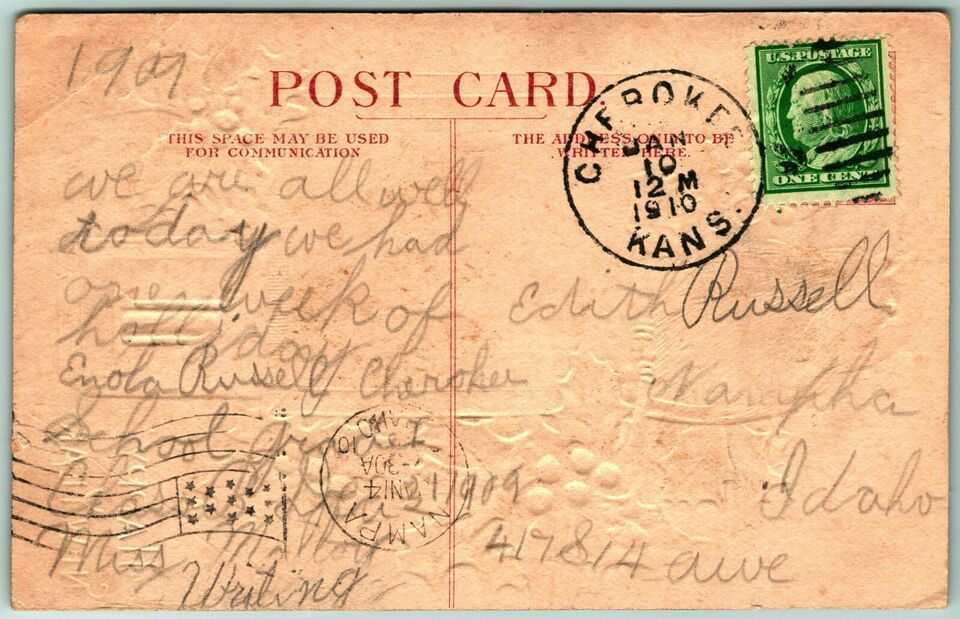 1909
POST CARD.
THIS SPACE MAY BE USED
FOR COMMUNICATION
THE ADDRESS ONLY TO BE
WRITTEN HERE.
U.S. POSTAGE
ONE CENT
CHEROKEE
JAN
10
12 M
1910
KANS.
we are all well
today we had
one week of
holliday
Enola Russell Cherokee
School grade 1
Class Dec 21 1909
Miss Malloy
Writing
Edith Russell
Nampha
Idaho
417 814 awe
NAMPA
JAN 14
-30A
10
IDAHO